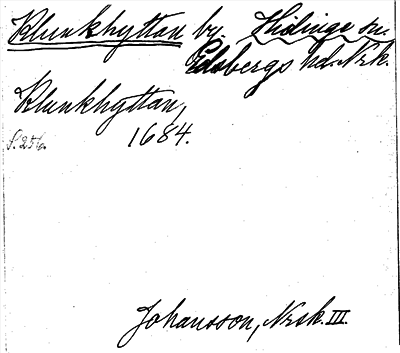 Klunkhyttan by. Hidinge sn.
Edsbergs hd. Nrk.
Klunkhyttan,
1684.
S. 256.
Johansson, Nrsk. III.